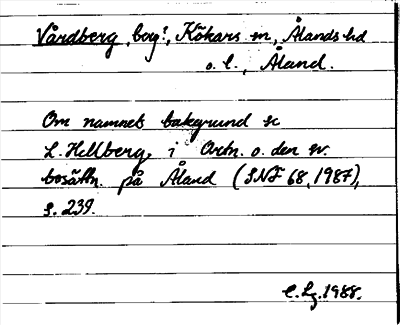 Vårdberg, bog!, Kökars sn, Ålands hd
o. l., Åland.
Om namnet bakgrund se
L. Hellberg, i Ortn. o. den sv.
bosättn. på Åland (SNF 68, 1987),
s. 239.
C. Lg. 1988.